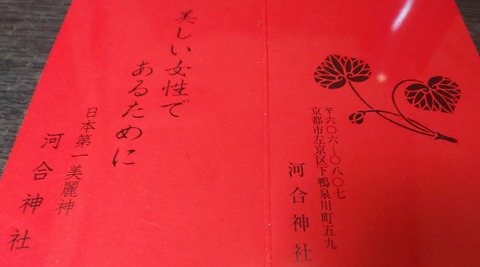 〒六〇六―〇八〇七
京都市左京区下鴨泉川町五九
河合神社
美しい女性で
あるために
日本第一美麗神
河合神社